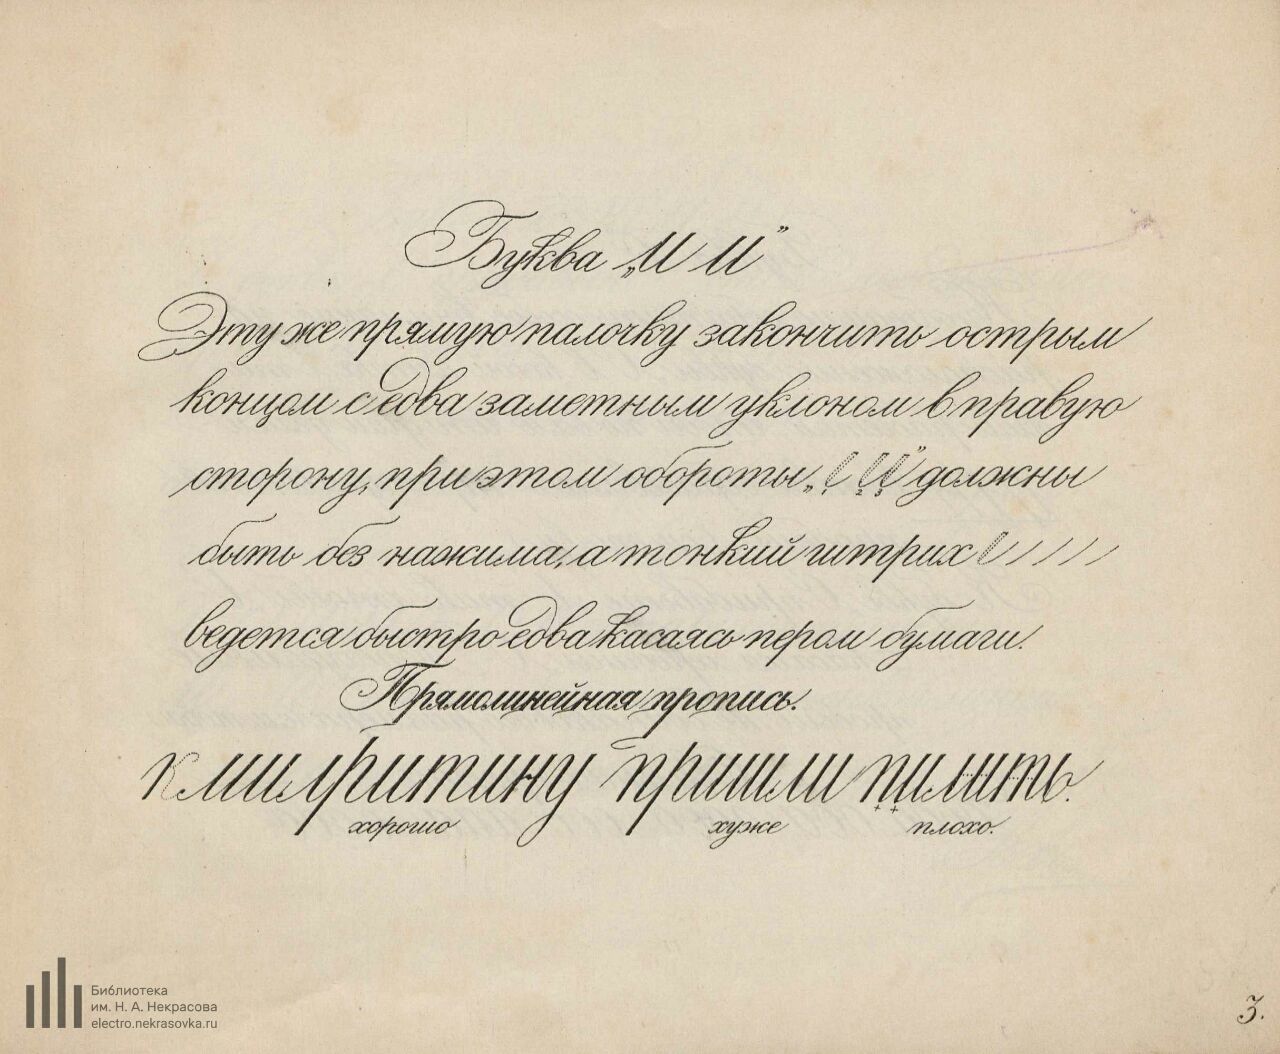 Буква „И И"
Эту же прямую палочку закончить острым
концом с едва заметным уклоном в правую
сторону, при этом обороты „ " должны
быть без нажима, а тонкий штрих
ведется быстро едва касаясь пером бумаги.
Прямолинейная пропись.
к милритину пришли пилить.
хорошо хуже плохо.
Библиотека
им. Н. А. Некрасова
electro.nekrasovka.ru
3.